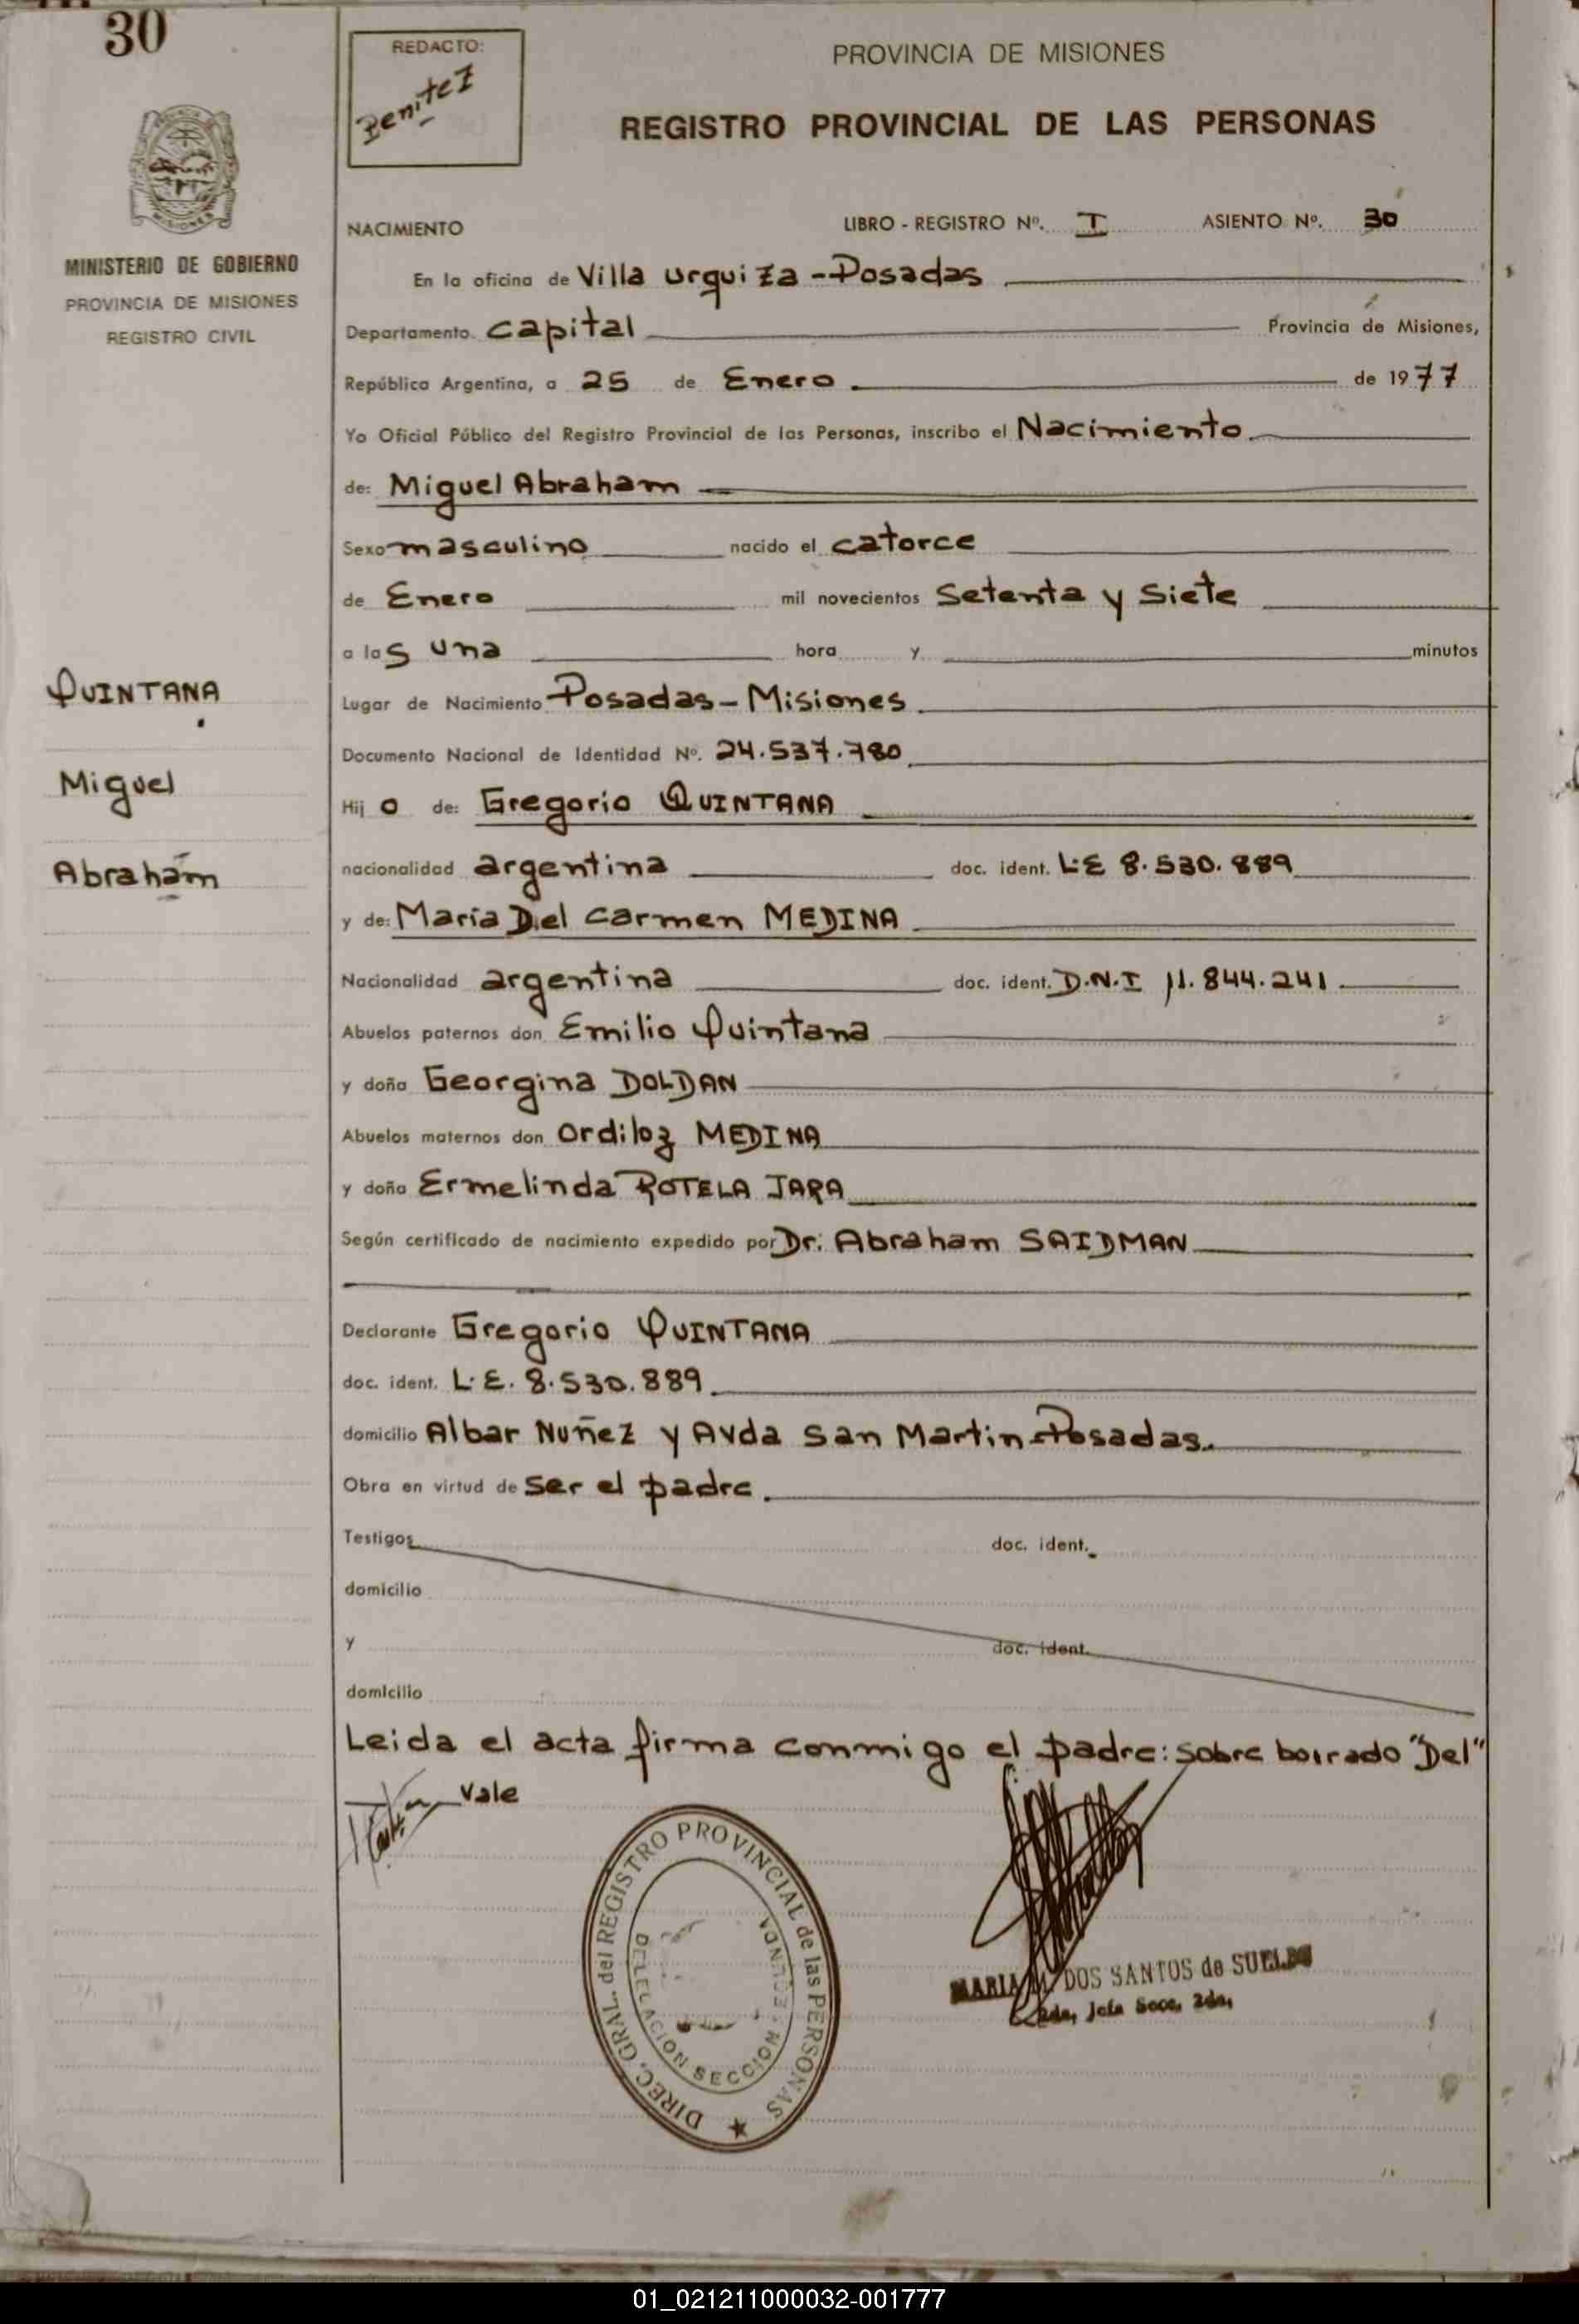 30
REDACTO:
Benitez
PROVINCIA DE MISIONES
REGISTRO PROVINCIAL DE LAS PERSONAS
MISIONES
MINISTERIO DE GOBIERNO
PROVINCIA DE MISIONES
REGISTRO CIVIL
NACIMIENTO LIBRO - REGISTRO Nº. I ASIENTO Nº. 30
En la oficina de Villa Urquiza - Posadas
Departamento capital Provincia de Misiones,
República Argentina, a 25 de Enero de 1977
Yo Oficial Público del Registro Provincial de las Personas, inscribo el Nacimiento
de: Miguel Abraham
Sexo masculino nacido el catorce
de Enero mil novecientos Setenta y Siete
a las una hora y minutos
QUINTANA
Miguel
Abraham
Lugar de Nacimiento Posadas - Misiones
Documento Nacional de Identidad Nº. 24.537.780
Hijo de: Gregorio QUINTANA
nacionalidad argentina doc. ident. L.E 8.530.889
y de: Maria Del Carmen MEDINA
Nacionalidad argentina doc. ident. D.N.I 11.844.241
Abuelos paternos don Emilio Quintana
y doña Georgina DOLDAN
Abuelos maternos don Ordiloz MEDINA
y doña Ermelinda ROTELA JARA
Según certificado de nacimiento expedido por Dr: Abraham SAIDMAN
Declarante Gregorio QUINTANA
doc. ident. L.E. 8.530.889
domicilio Albar Nuñez y Avda San Martin - Posadas.
Obra en virtud de ser el padre.
Testigos doc. ident.
domicilio
y doc. ident.
domicilio
Leida el acta firma conmigo el padre: sobre borrado "Del"
vale
DIREC. GRAL. del REGISTRO PROVINCIAL de las PERSONAS
DELEGACION SECCION SEGUNDA
MARIA M. DOS SANTOS de SUELDO
2da, Jefa Secc. 2da,
01_021211000032-001777